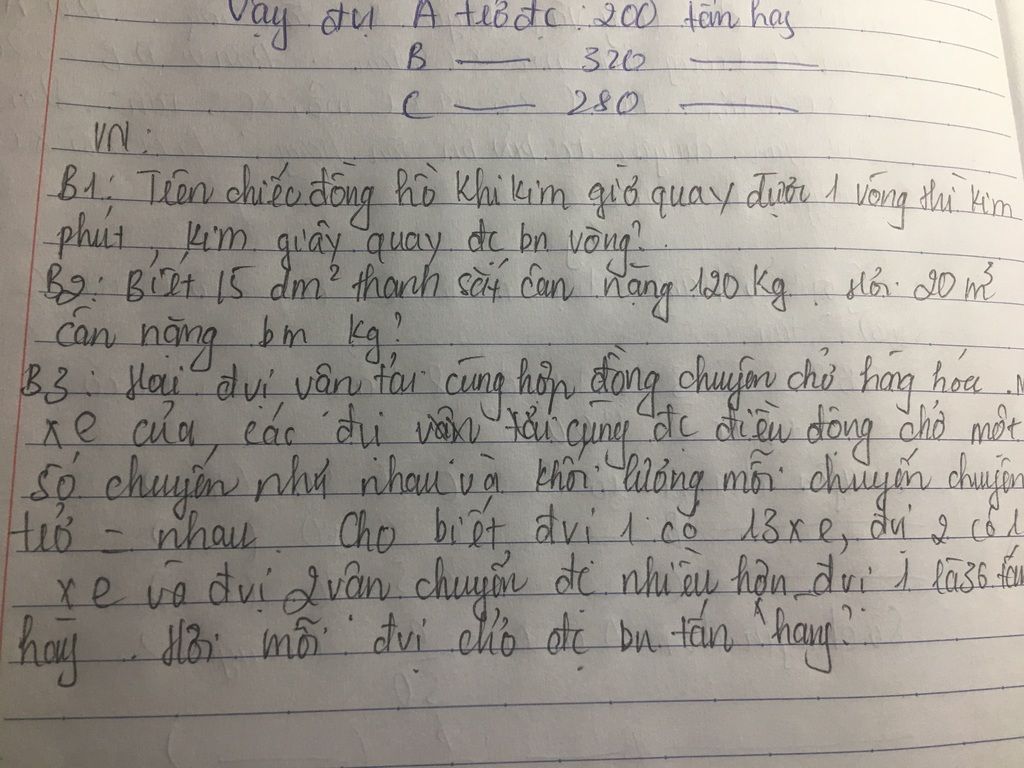 Vậy đvị A trở đc : 200 tấn hàg
B — 320 —
C — 280 —
VN :
B1 : Trên chiếc đồng hồ khi kim giờ quay được 1 vòng thì kim
phút, kim giây quay đc bn vòng?
B2 : Biết 15 dm² thanh sắt cân nặng 120 Kg. Hỏi 20 m²
cân nặng bn kg?
B3 : Hai đvi vận tải cùng hợp đồng chuyên chở hàng hóa.
xe của các đvi vận tải cùng đc điều động chở một
số chuyến như nhau và khối lượng mỗi chuyến chuyên
trở = nhau. Cho biết đvi 1 có 13 xe, đvi 2 có
xe và đvị 2 vận chuyển đc nhiều hơn đvi 1 là 36 tấn
hàg. Hỏi mỗi đvị chở đc bn tấn hàng?